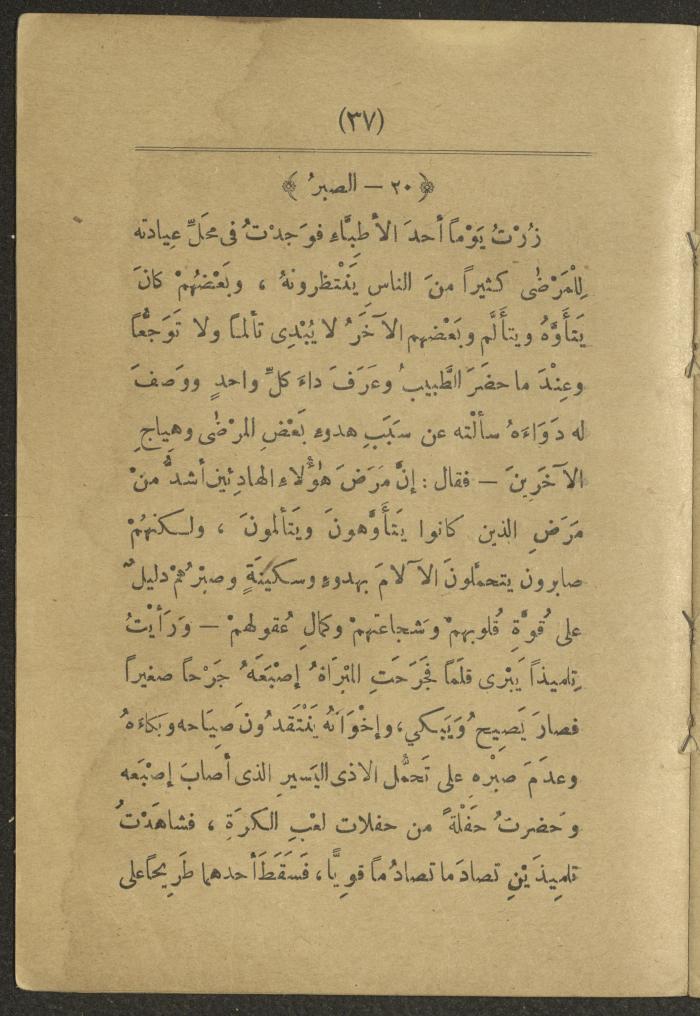 (٣٧)
﴿ ٢٠ — الصبرُ ﴾
زُرْتُ يَوْماً أحدَ الأطبَّاءِ فوَجدْتُ فى محَلِّ عِيادته
لِلْمَرْضٰى كثيراً منَ الناسِ يَنْتظرونهُ ، وبَعْضُهُمْ كانَ
يَتأَوَّهُ ويتأَلَّم وبَعْضهم الآخَرُ لا يُبْدِى تألمـًا ولا تَوَجُّعاً
وعِنْدَ ما حضَرَ الطَّبيبُ وعَرَفَ داءَ كلِّ واحدٍ ووَصفَ
له دَوَاءَهُ سألْته عن سَبَبِ هدوءِ بَعْضِ المرْضٰى وهِياجِ
الآخَرِينَ — فقال : إنَّ مَرَضَ هٰؤُلاءِ الهادِئين أشدُّ منْ
مَرَضِ الذين كانوا يَتأَوَّهونَ ويَتألمونَ ، ولـكنهُمْ
صابرون يتحمَّلونَ الآلامَ بهدوءٍ وسكينَةٍ وصبْرُهُمْ دليلٌ
على قُوَّةِ قُلوبهمْ وَشجاعتهمْ وكمالِ عُقولهمْ — وَرَأيْتُ
تِلميذاً يَبْرى قلَمًا فجَرَحَتِ المْبْرَاةُ إصْبَعَهُ جَرْحاً صغيراً
فصارَ يَصيِحُ وَيَبكي، وإخْوَانُه يَنْتَقدُونَ صِيَاحه وبكاءَهُ
وعدَمَ صبْرِه على تَحَمُّل الاذى اليَسيرِ الذى أصابَ إصْبَعه
وحَضرتُ حَفْلَةً من حفلات لعْبِ الـكرَةِ ، فشاهَدْتُ
تلمِيذَيْنِ تصادَما تصادُماً قوِيًّا، فَسَقَطَ أحدهما طَرِيحًا على